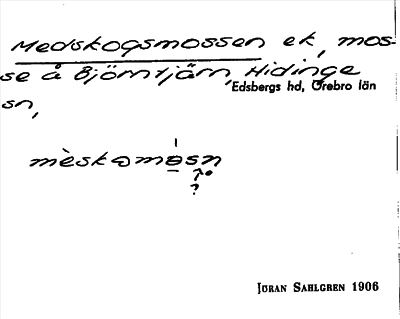 Medskogsmossen ek, mos-
se å Björntjärn, Hidinge
Edsbergs hd, Örebro län
sn,
mèskɷmɵsn
?
JÖRAN SAHLGREN 1906